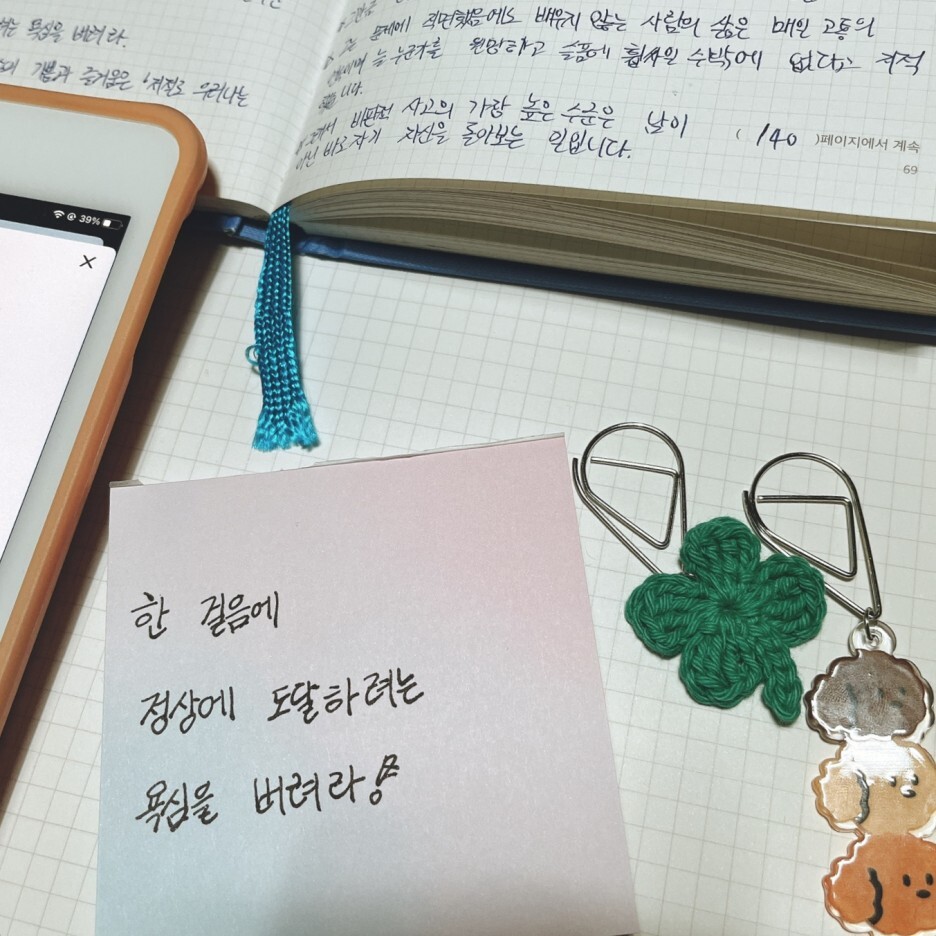 욕심을 버려라.
기쁨과 즐거움은
문제에 직면했음에도 배우지 않는 사람의 삶은 매일 고통의
원망하고 슬픔에 휩싸일 수밖에 없다고 지적
니다.
비판적 사고의 가장 높은 수준은 남이
아닌 바로 자기 자신을 돌아보는 일입니다.
( 140 )페이지에서 계속
69
39%
한 걸음에
정상에 도달하려는
욕심을 버려라!